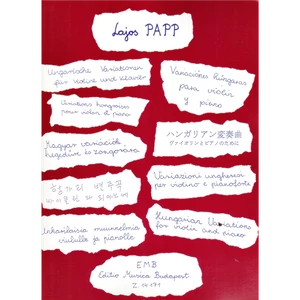 Lajos PAPP
Ungarische Variationen
für Violine und Klavier
Variaciónes húngaras
para violín
y piano
Variations hongroises
pour violon et piano
ハンガリアン変奏曲
ヴァイオリンとピアノのために
Magyar variációk
hegedűre és zongorára
Variazioni ungheresi
per violino e pianoforte
헝가리 변주곡
바이올린과 피아노
Unkarilaisia muunnelmia
viululle ja pianolle
Hungarian Variations
for violin and piano
EMB
Editio Musica Budapest